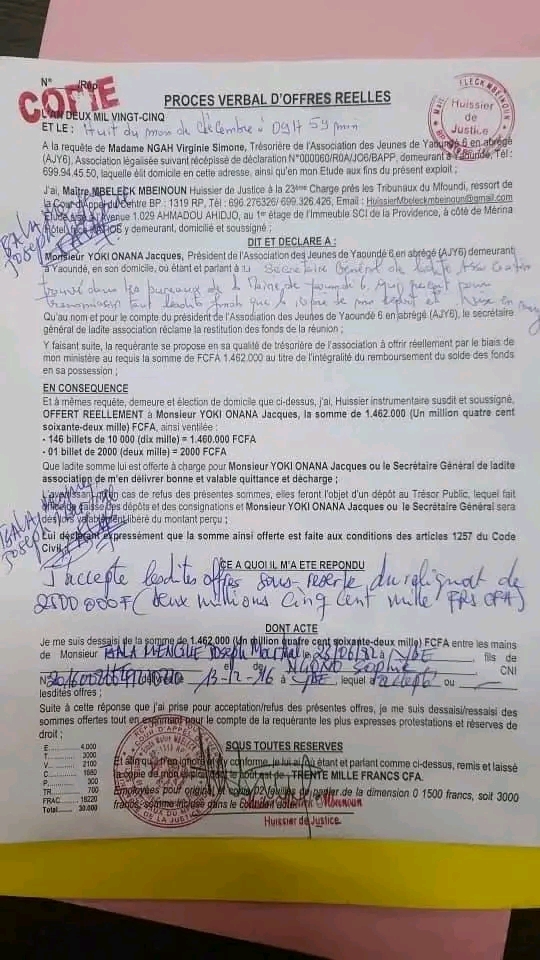 N° /Rép
COPIE
PROCES VERBAL D'OFFRES REELLES
Huissier
de
Justice
L'AN DEUX MIL VINGT-CINQ
ET LE : Huit du mois de décembre à 09H 59 min
A la requête de Madame NGAH Virginie Simone, Trésorière de l'Association des Jeunes de Yaoundé 6 en abrégé
(AJY6), Association légalisée suivant récépissé de déclaration N°000060/R0A/JO6/BAPP, demeurant à Yaoundé, Tél :
699.94.45.50, laquelle élit domicile en cette adresse, ainsi qu'en mon Etude aux fins du présent exploit ;
J'ai, Maître MBELECK MBEINOUN Huissier de Justice à la 23ème Charge près les Tribunaux du Mfoundi, ressort de
la Cour d'Appel du Centre BP : 1319 RP, Tél : 696.276326/ 699.326.426, Email : HuissierMbeleckmbeinoun@gmail.com
Etude sise à l'Avenue 1.029 AHMADOU AHIDJO, au 1er étage de l'Immeuble SCI de la Providence, à côté de Mérina
Hôtel, y demeurant, domicilié et soussigné ;
BALA
Joseph
DIT ET DECLARE A :
Monsieur YOKI ONANA Jacques, Président de l'Association des Jeunes de Yaoundé 6 en abrégé (AJY6) demeurant
à Yaoundé, en son domicile, ou étant et parlant à : Secrétaire Général de ladite Association
trouvé dans les bureaux de la Mairie de Yaoundé 6, qui reçoit pour
Qu'au nom et pour le compte du président de l'Association des Jeunes de Yaoundé 6 en abrégé (AJY6), le secrétaire
général de ladite association réclame la restitution des fonds de la réunion ;
Y faisant suite, la requérante se propose en sa qualité de trésorière de l'association à offrir réellement par le biais de
mon ministère au requis la somme de FCFA 1.462.000 au titre de l'intégralité du remboursement du solde des fonds
en sa possession ;
EN CONSEQUENCE
Et à mêmes requête, demeure et élection de domicile que ci-dessus, j'ai, Huissier instrumentaire susdit et soussigné,
OFFERT REELLEMENT à Monsieur YOKI ONANA Jacques, la somme de 1.462.000 (Un million quatre cent
soixante-deux mille) FCFA, ainsi ventilée :
- 146 billets de 10 000 (dix mille) = 1.460.000 FCFA
- 01 billet de 2000 (deux mille) = 2000 FCFA
Que ladite somme lui est offerte à charge pour Monsieur YOKI ONANA Jacques ou le Secrétaire Général de ladite
association de m'en délivrer bonne et valable quittance et décharge ;
L'avertissant qu'en cas de refus des présentes sommes, elles feront l'objet d'un dépôt au Trésor Public, lequel fait
office de caisse des dépôts et des consignations et Monsieur YOKI ONANA Jacques ou le Secrétaire Général sera
dès lors valablement libéré du montant perçu ;
BALA
Joseph
Lui déclarant expressément que la somme ainsi offerte est faite aux conditions des articles 1257 du Code
Civil ;
CE A QUOI IL M'A ETE REPONDU
J'accepte lesdites offres sous reserve du reliquat de
2500 000 F (deux millions cinq cent mille FRS CFA)
DONT ACTE
Je me suis dessaisi de la somme de 1.462.000 (Un million quatre cent soixante-deux mille) FCFA entre les mains
de Monsieur BALA MENGUE Joseph Martial le 23/06/82 à NDE fils de
de NGONO Sophie CNI
N° délivrée 13-12-16 à , lequel accepté ou
lesdites offres ;
Suite à cette réponse que j'ai prise pour acceptation/refus des présentes offres, je me suis dessaisi/ressaisi des
sommes offertes tout en exprimant pour le compte de la requérante les plus expresses protestations et réserves de
droit ;
SOUS TOUTES RESERVES
Et afin qu'il n'en ignore et s'y conforme, je lui ai, où étant et parlant comme ci-dessus, remis et laissé
la copie de mon exploit dont le coût est de : TRENTE MILLE FRANCS CFA.
Employées pour original et copie 02 feuilles de papier de la dimension 0 1500 francs, soit 3000
francs, somme incluse dans le
E 4.000
T 3000
V 2100
C 1680
P 300
TR 700
FRAC 18220
Total 30.000
Mbeinoun
Huissier de Justice